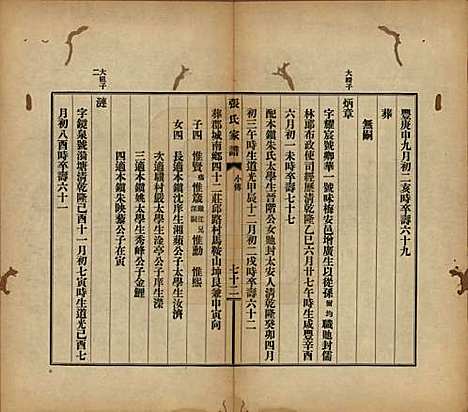 豐庚申九月初二亥時卒壽六十九
葬
無嗣
大時子
炳章
字耀宸號卿華一號味梅安邑增廣生以從孫爾均職貤封儒
林郎布政使司經歷清乾隆乙巳六月廿七午時生咸豐辛酉
六月初一未時卒壽七十七
配本鎮朱氏太學生晉階公女貤封太安人清乾隆癸卯四月
初三午時生道光甲辰十二月初二戌時卒壽六十二
張氏家譜
七十二
葬郡城南鄉四十二莊邱路村馬鞍山坤艮兼申寅向
子四 惟賢殤 惟箴繼江兄深嗣 惟勳 惟熙
女四 長適本鎮沈庠生湘蘋公子太學生汝濟
次適驥村嚴太學生淦亭公子庠生深
三適本鎮姚太學生秀峰公子金鯉
四適本鎮朱映藜公子在寅
大祖子二
漣
字鏡泉號瀚塘清乾隆己酉十一月初七寅時生道光己酉七
月初八酉時卒壽六十一